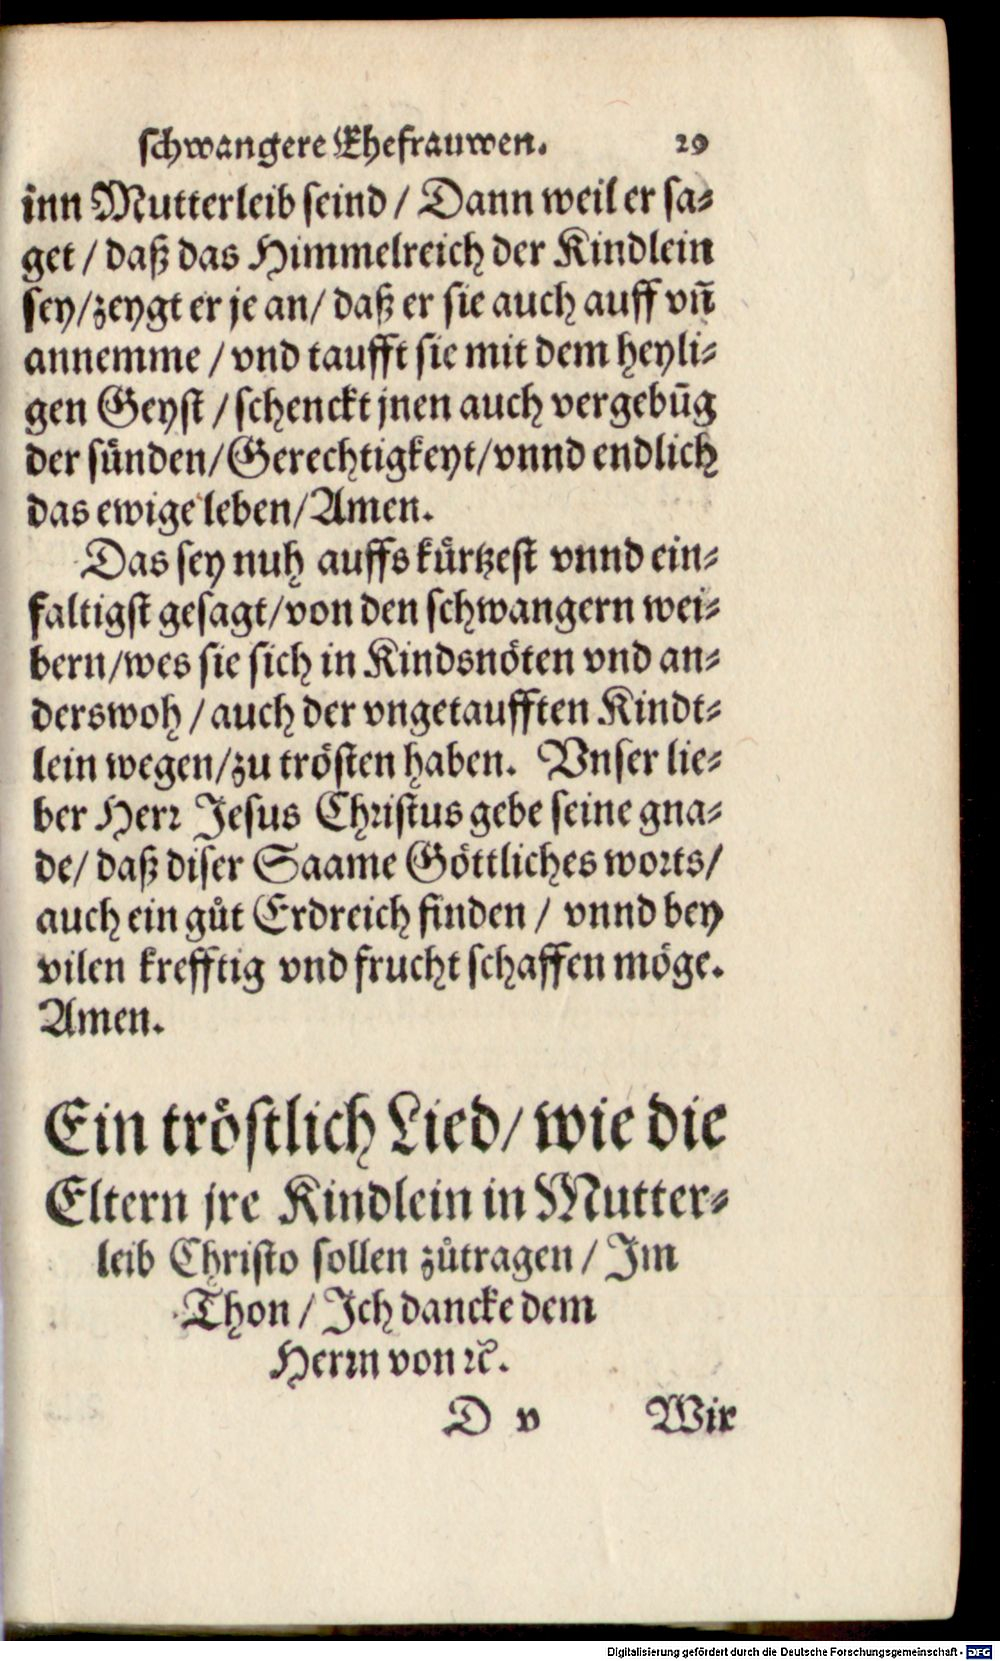 schwangere Ehefrauwen. 29
inn Mutterleib seind / Dann weil er sa⸗
get / daß das Himmelreich der Kindlein
sey/zeygt er je an/ daß er sie auch auff vn̄
annemme / vnd taufft sie mit dem heyli⸗
gen Geyst / schenckt jnen auch vergebūg
der sünden/Gerechtigkeyt/vnnd endlich
das ewige leben/Amen.
Das sey nuh auffs kürtzest vnnd ein⸗
faltigst gesagt/von den schwangern wei⸗
bern/wes sie sich in Kindsnöten vnd an⸗
derswoh / auch der vngetaufften Kindt⸗
lein wegen/zu trösten haben. Vnser lie⸗
ber Herr Jesus Christus gebe seine gna⸗
de/ daß diser Saame Göttliches worts/
auch ein gůt Erdreich finden / vnnd bey
vilen krefftig vnd frucht schaffen möge.
Amen.
Ein tröstlich Lied/ wie die
Eltern jre Kindlein in Mutter⸗
leib Christo sollen zůtragen / Im
Thon / Ich dancke dem
Herrn von ꝛc̄.
D v Wir
Digitalisierung gefördert durch die Deutsche Forschungsgemeinschaft - DFG